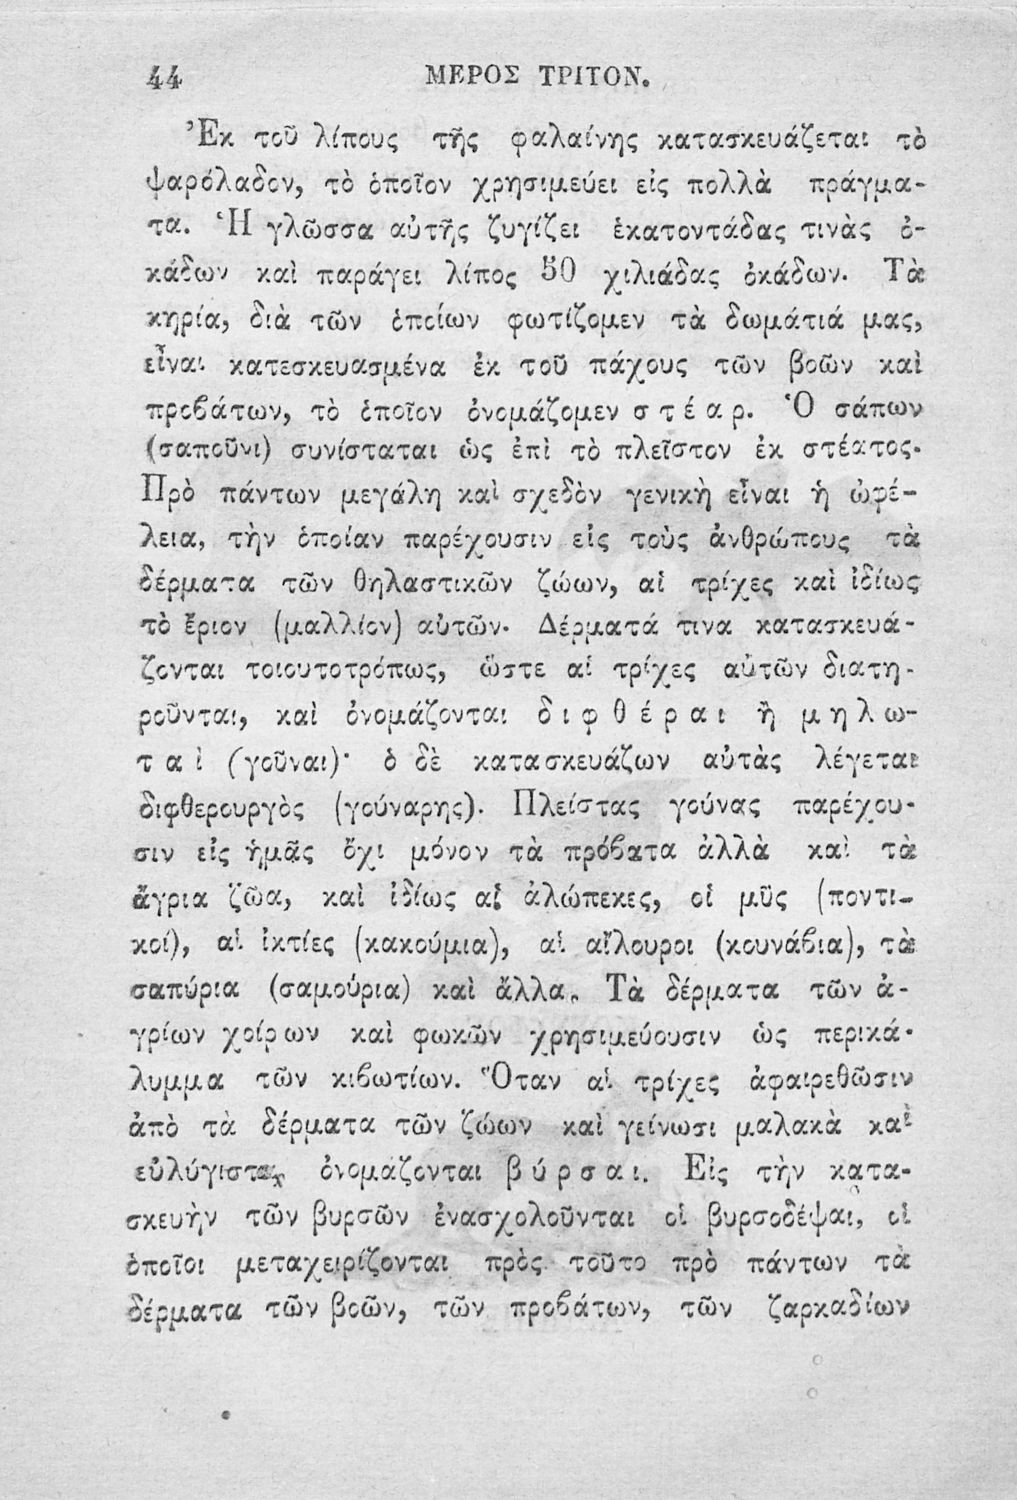 44 ΜΕΡΟΣ ΤΡΙΤΟΝ.
Ἐκ τοῦ λίπους τῆς φαλαίνης κατασκευάζεται τὸ
ψαρόλαδον, τὸ ὁποῖον χρησιμεύει εἰς πολλὰ πράγμα-
τα. Ἡ γλῶσσα αὐτῆς ζυγίζει ἑκατοντάδας τινὰς ὀ-
κάδων καὶ παράγει λίπος 50 χιλιάδας ὀκάδων. Τὰ
κηρία, διὰ τῶν ὁποίων φωτίζομεν τὰ δωμάτιά μας,
εἶναι κατεσκευασμένα ἐκ τοῦ πάχους τῶν βοῶν καὶ
προβάτων, τὸ ὁποῖον ὀνομάζομεν στέαρ. Ὁ σάπων
(σαποῦνι) συνίσταται ὡς ἐπὶ τὸ πλεῖστον ἐκ στέατος.
Πρὸ πάντων μεγάλη καὶ σχεδὸν γενικὴ εἶναι ἡ ὠφέ-
λεια, τὴν ὁποίαν παρέχουσιν εἰς τοὺς ἀνθρώπους τὰ
δέρματα τῶν θηλαστικῶν ζώων, αἱ τρίχες καὶ ἰδίως
τὸ ἔριον (μαλλίον) αὐτῶν. Δέρματά τινα κατασκευά-
ζονται τοιουτοτρόπως, ὥστε αἱ τρίχες αὐτῶν διατη-
ροῦνται, καὶ ὀνομάζονται διφθέραι ἢ μηλω-
ταὶ (γοῦναι)· ὁ δὲ κατασκευάζων αὐτὰς λέγεται
διφθερουργὸς (γούναρης). Πλείστας γούνας παρέχου-
σιν εἰς ἡμᾶς ὄχι μόνον τὰ πρόβατα ἀλλὰ καὶ τὰ
ἄγρια ζῶα, καὶ ἰδίως αἱ ἀλώπεκες, οἱ μῦς (ποντι-
κοί), αἱ ἰκτίες (κακούμια), αἱ αἴλουροι (κουνάβια), τὰ
σαπύρια (σαμούρια) καὶ ἄλλα. Τὰ δέρματα τῶν ἀ-
γρίων χοίρων καὶ φωκῶν χρησιμεύουσιν ὡς περικά-
λυμμα τῶν κιβωτίων. Ὅταν αἱ τρίχες ἀφαιρεθῶσιν
ἀπὸ τὰ δέρματα τῶν ζώων καὶ γείνωσι μαλακὰ καὶ
εὐλύγιστα, ὀνομάζονται βύρσαι. Εἰς τὴν κατα-
σκευὴν τῶν βυρσῶν ἐνασχολοῦνται οἱ βυρσοδέψαι, οἱ
ὁποῖοι μεταχειρίζονται πρὸς τοῦτο πρὸ πάντων τὰ
δέρματα τῶν βοῶν, τῶν προβάτων, τῶν ζαρκαδίων